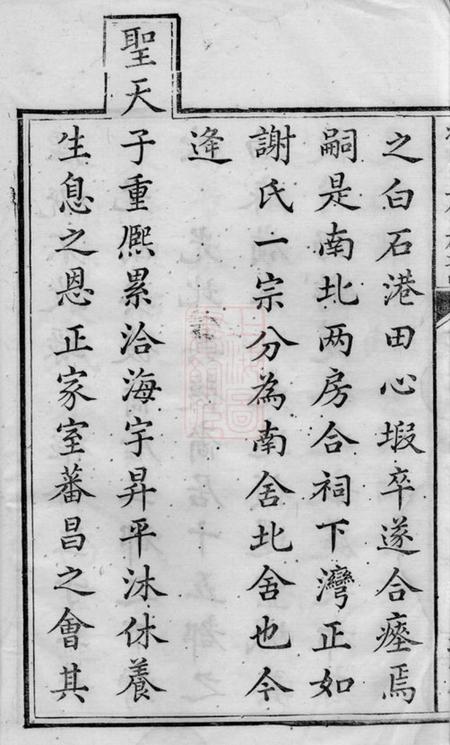 之白石港田心塅卒遂合瘞焉
嗣是南北两房合祠下灣正如
謝氏一宗分為南舍北舍也今
逢
聖天子重熈累洽海宇昇平沐休養
生息之恩正家室蕃昌之會其